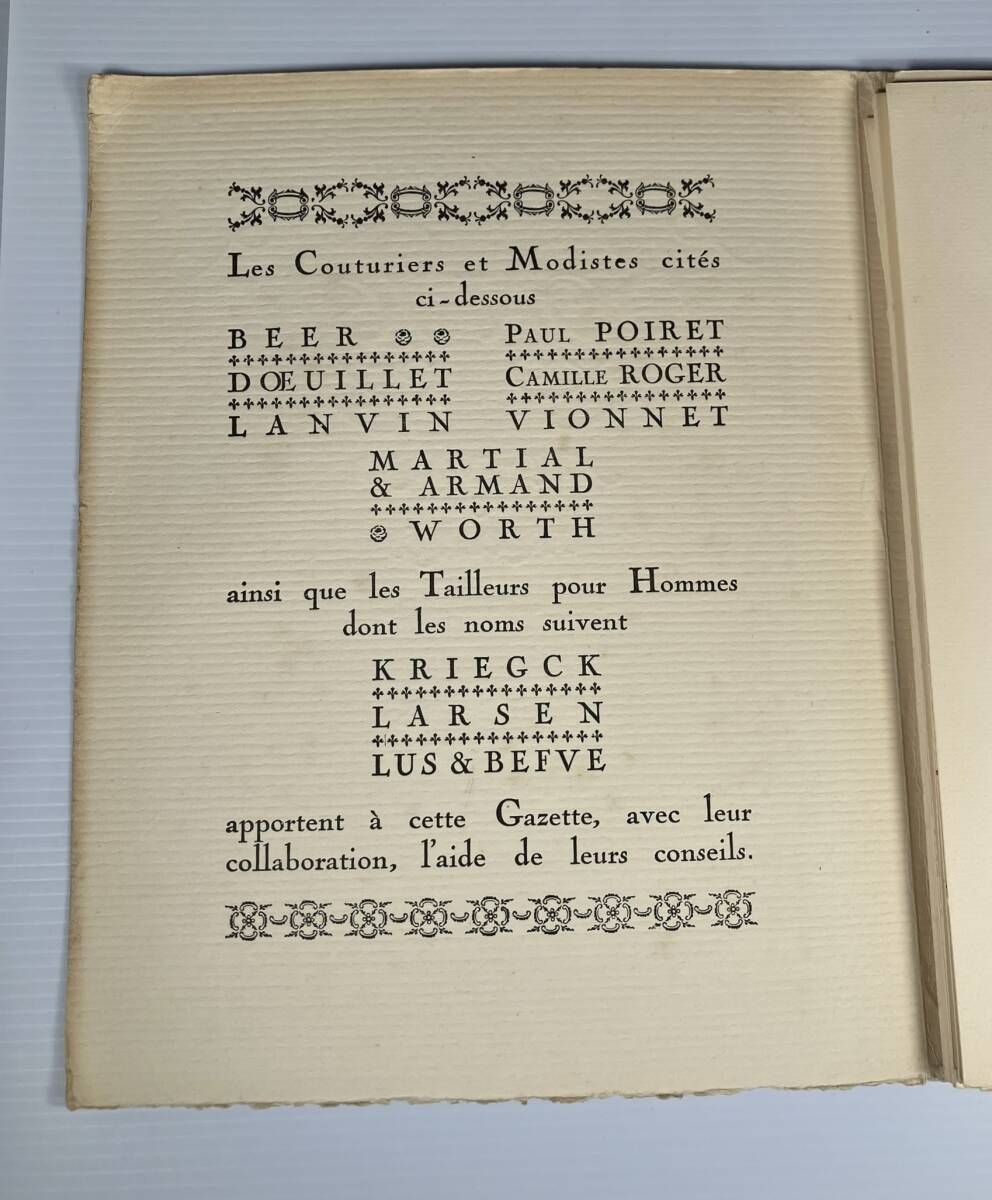 Les Couturiers et Modistes cités
ci-dessous
BEER PAUL POIRET
DŒUILLET CAMILLE ROGER
LANVIN VIONNET
MARTIAL
& ARMAND
WORTH
ainsi que les Tailleurs pour Hommes
dont les noms suivent
KRIEGCK
LARSEN
LUS & BEFVE
apportent à cette Gazette, avec leur
collaboration, l'aide de leurs conseils.